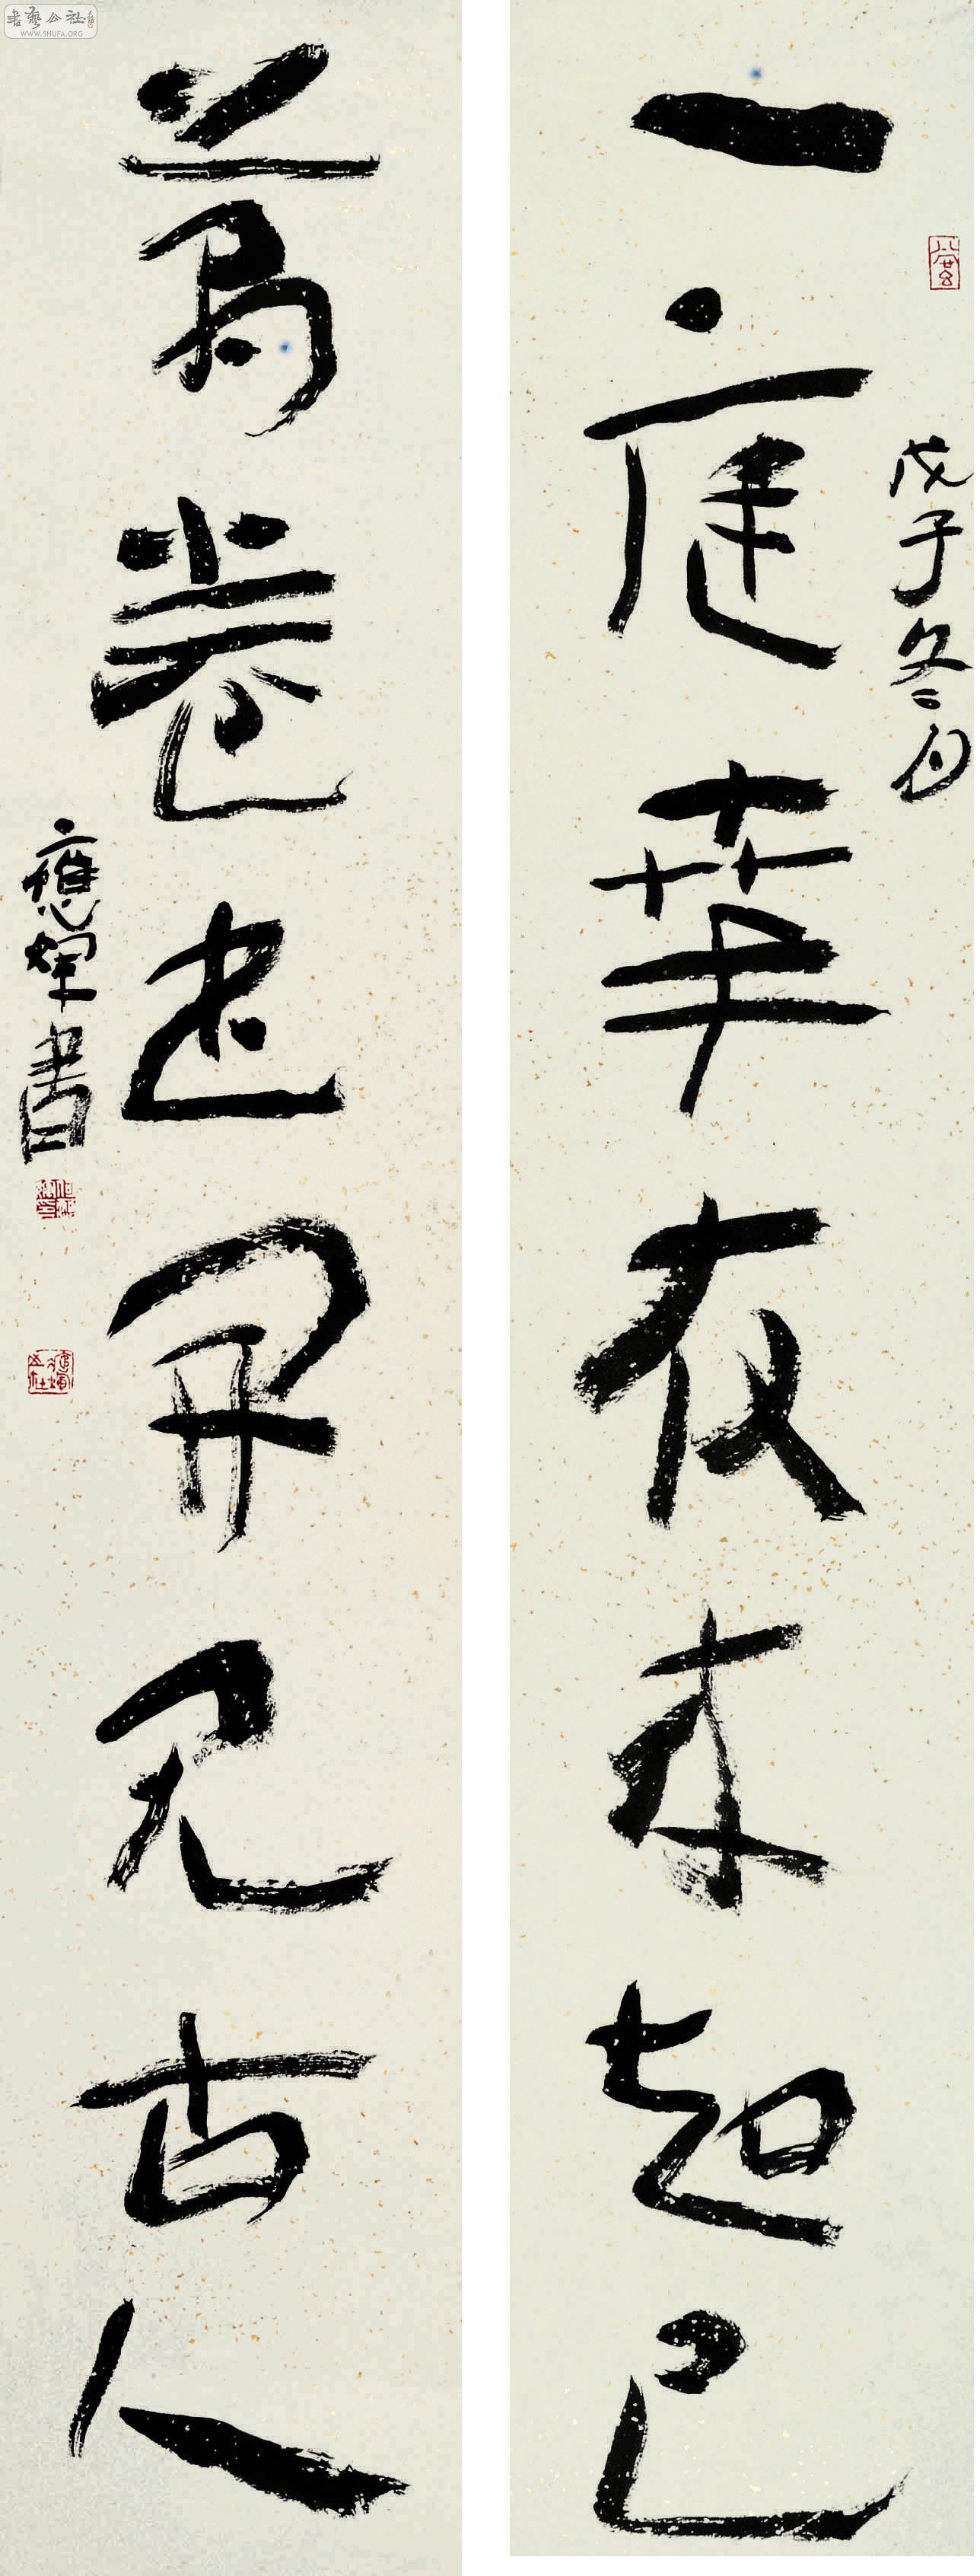 戊子冬月
一庭華發來知己
萬卷書開見古人
應煇書
書藝公社
WWW.SHUFA.ORG